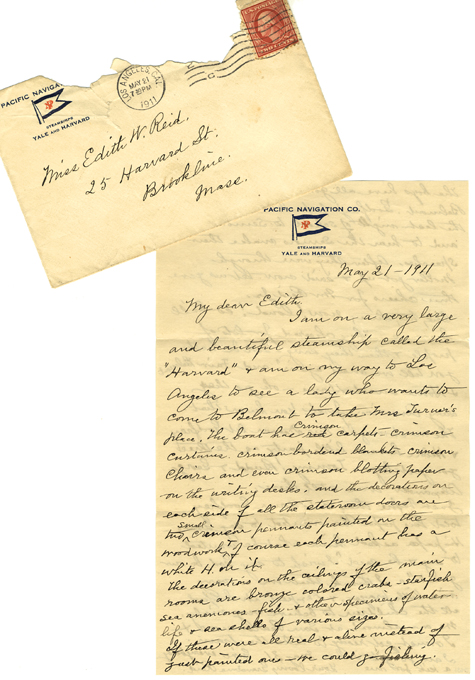 PACIFIC NAVIGATION
STEAMSHIPS
YALE AND HARVARD
LOS ANGELES, CAL.
MAY 21
7 30 PM
1911
Miss Edith W. Reid.
25 Harvard St.
Brookline.
Mass.
PACIFIC NAVIGATION CO.
STEAMSHIPS
YALE AND HARVARD
May 21 - 1911
My dear Edith
I am on a very large
and beautiful steamship called the
"Harvard" & am on my way to Los
Angeles to see a lady who wants to
come to Belmont to take Mrs Turner's
place. The boat has red Crimson carpets crimson
curtains. crimson bordered blankets crimson
chairs and even crimson blotting paper
on the writing desks. and the decorations on
each side of all the stateroom doors are
two small crimson pennants painted on the
woodwork & of course each pennant has a
white H. on it
The decorations on the ceilings of the main
rooms are bronze colored crabs - starfish
sea anemones - fish - & other specimens of water
life & sea shells of various sizes.
If these were all real & alive instead of
just painted ones - we could g fishing.